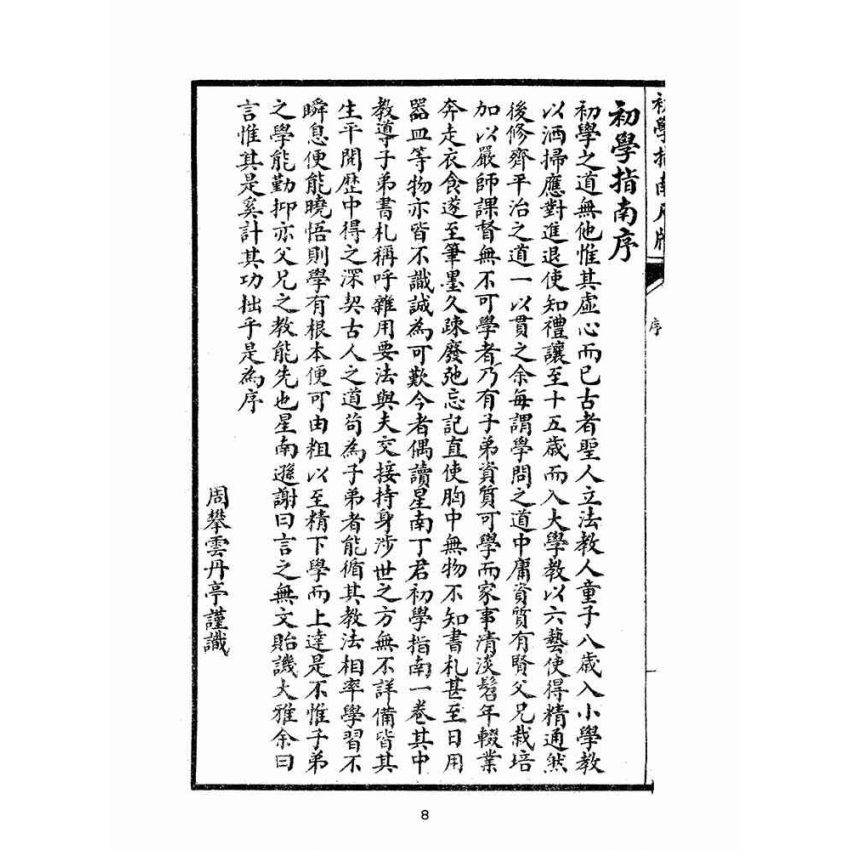 初學指南尺牘
序
初學指南序
初學之道無他惟其虛心而已古者聖人立法教人童子八歲入小學教
以洒掃應對進退使知禮讓至十五歲而入大學教以六藝使得精通然
後修齊平治之道一以貫之余每謂學問之道中庸資質有賢父兄栽培
加以嚴師課督無不可學者乃有子弟資質可學而家事清淡髫年輟業
奔走衣食遂至筆墨久疎廢弛忘記直使胸中無物不知書札甚至日用
器皿等物亦皆不識誠為可歎今者偶讀星南丁君初學指南一卷其中
教導子弟書札稱呼雜用要法與夫交接持身涉世之方無不詳備皆其
生平閱歷中得之深契古人之道茍為子弟者能循其教法相率學習不
瞬息便能曉悟則學有根本便可由粗以至精下學而上達是不惟子弟
之學能勤抑亦父兄之教能先也星南遜謝曰言之無文貽譏大雅余曰
言惟其是奚計其功拙乎是為序
周攀雲丹亭謹識
8